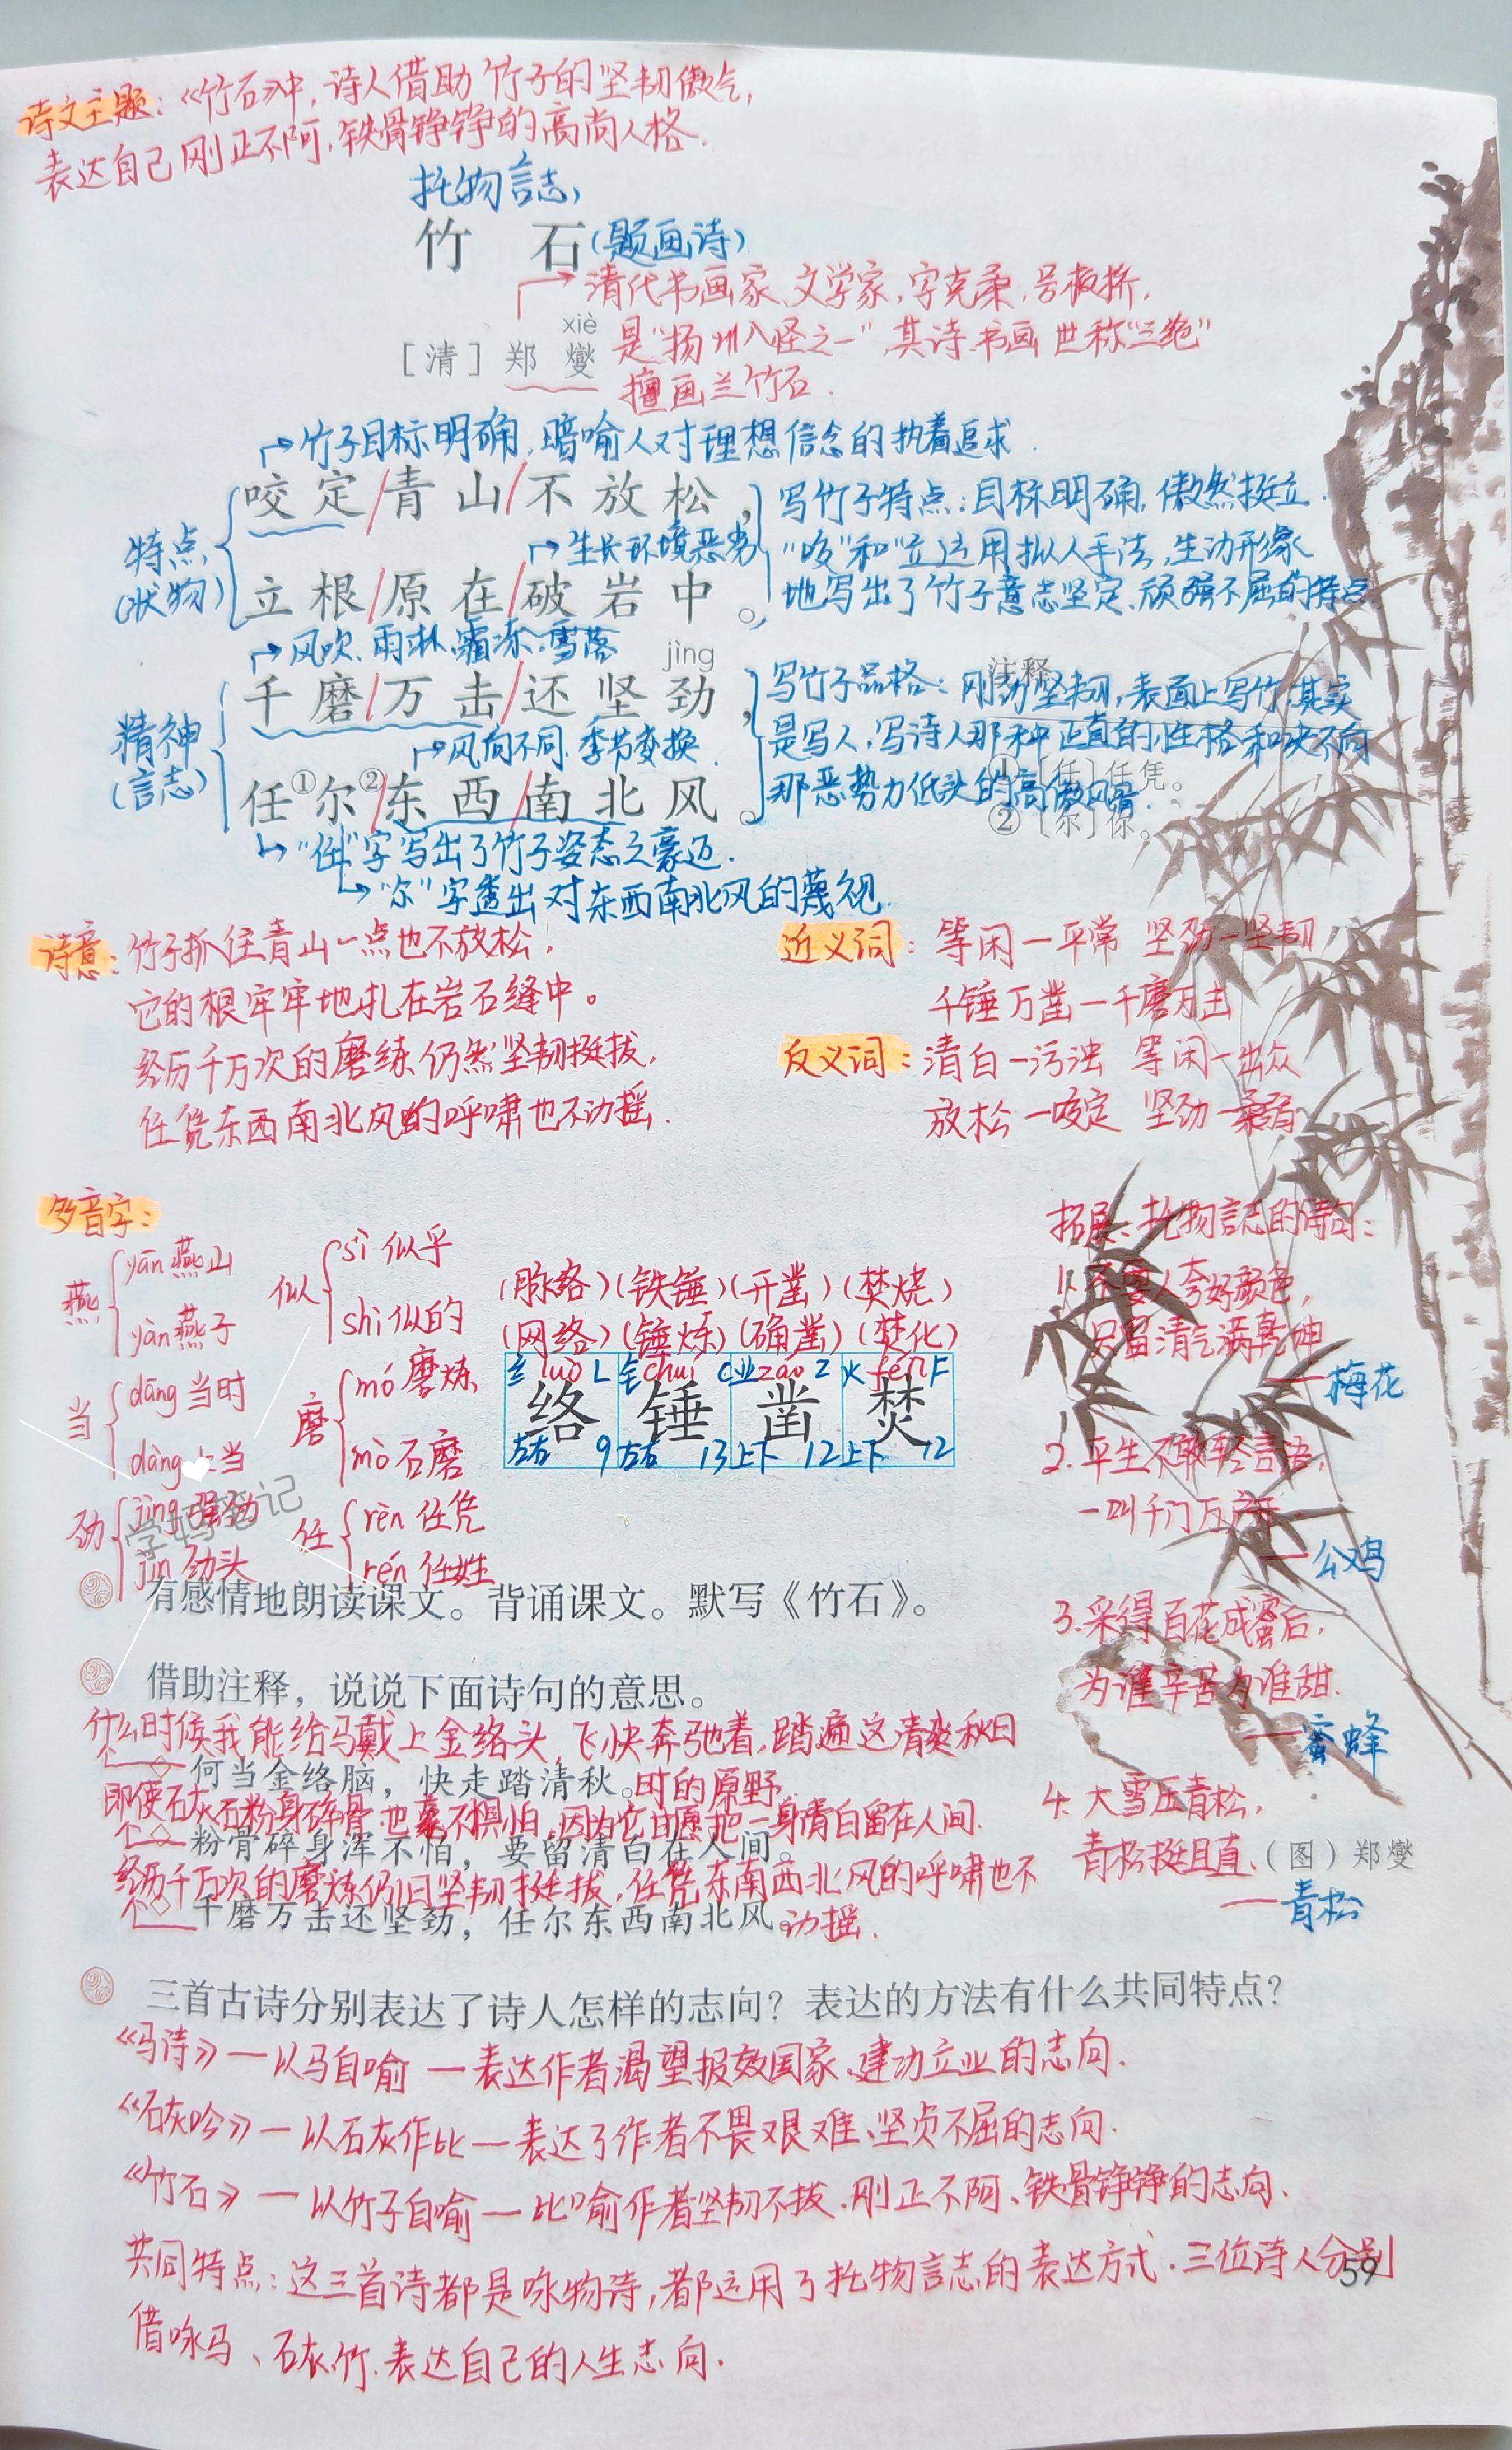 诗文主题：《竹石》中，诗人借助竹子的坚韧傲气，
表达自己刚正不阿，铁骨铮铮的高尚人格．
托物言志
竹 石(题画诗)
清代书画家、文学家，字克柔，号板桥，
xiè
［清］郑 燮
是"扬州八怪之一"，其诗书画世称"三绝"
擅画兰竹石．
竹子目标明确，暗喻人对理想信念的执着追求．
咬定/青山/不放松，
写竹子特点：目标明确，傲然挺立．
特点
(状物)
生长环境恶劣
"咬"和"立运用拟人手法，生动形象
立根/原在/破岩中。
地写出了竹子意志坚定、顽强不屈的特点
风吹、雨淋、霜冻、雪落
jìng
千磨/万击/还坚劲，
注释
写竹子品格：刚劲坚韧，表面上写竹，其实
精神
(言志)
风向不同．季节变换．
是写人，写诗人那种正直的性格和决不向
①［任］任凭。
任①尔②/东西/南北风。
那恶势力低头的高傲风骨．
②［尔］你。
"任"字写出了竹子姿态之豪迈．
"尔"字透出对东西南北风的蔑视．
诗意：竹子抓住青山一点也不放松，
它的根牢牢地扎在岩石缝中。
经历千万次的磨练仍然坚韧挺拔，
任凭东西南北风的呼啸也不动摇．
近义词：等闲—平常 坚劲—坚韧
千锤万凿—千磨万击
反义词：清白—污浊 等闲—出众
放松—咬定 坚劲—柔弱
多音字：
燕 yān 燕山
yàn 燕子
似 sì 似乎
shì 似的
当 dāng 当时
dàng 当
磨 mó 磨炼
mò 石磨
劲 jìng 强劲
jìn 劲头
任 rèn 任凭
rén 任姓
学妈笔记
(脉络)(铁锤)(开凿)(焚烧)
(网络)(锤炼)(确凿)(焚化)
纟 luò L 钅 chuí C 业 záo Z 火 fén F
络 锤 凿 焚
左右 9 左右 13 上下 12 上下 12
拓展：托物言志的诗句：
1．不要人夸好颜色，
只留清气满乾坤
—梅花
2．平生不敢轻言语，
一叫千门万户开．
—公鸡
3．采得百花成蜜后，
为谁辛苦为谁甜．
—蜜蜂
4．大雪压青松，
青松挺且直．
—青松
（图）郑燮
有感情地朗读课文。背诵课文。默写《竹石》。
借助注释，说说下面诗句的意思。
什么时候我能给马戴上金络头，飞快奔驰着，踏遍这清爽秋日
时的原野．
何当金络脑，快走踏清秋。
即使石灰石粉身碎骨也毫不惧怕，因为它甘愿把一身清白留在人间．
粉骨碎身浑不怕，要留清白在人间。
经历千万次的磨炼仍旧坚韧挺拔，任凭东南西北风的呼啸也不
动摇．
千磨万击还坚劲，任尔东西南北风。
三首古诗分别表达了诗人怎样的志向？表达的方法有什么共同特点？
《马诗》—以马自喻—表达作者渴望报效国家、建功立业的志向．
《石灰吟》—以石灰作比—表达了作者不畏艰难、坚贞不屈的志向．
《竹石》—以竹子自喻—比喻作者坚韧不拔、刚正不阿、铁骨铮铮的志向．
共同特点：这三首诗都是咏物诗，都运用了托物言志的表达方式．三位诗人分别
借咏马、石灰、竹．表达自己的人生志向．
59